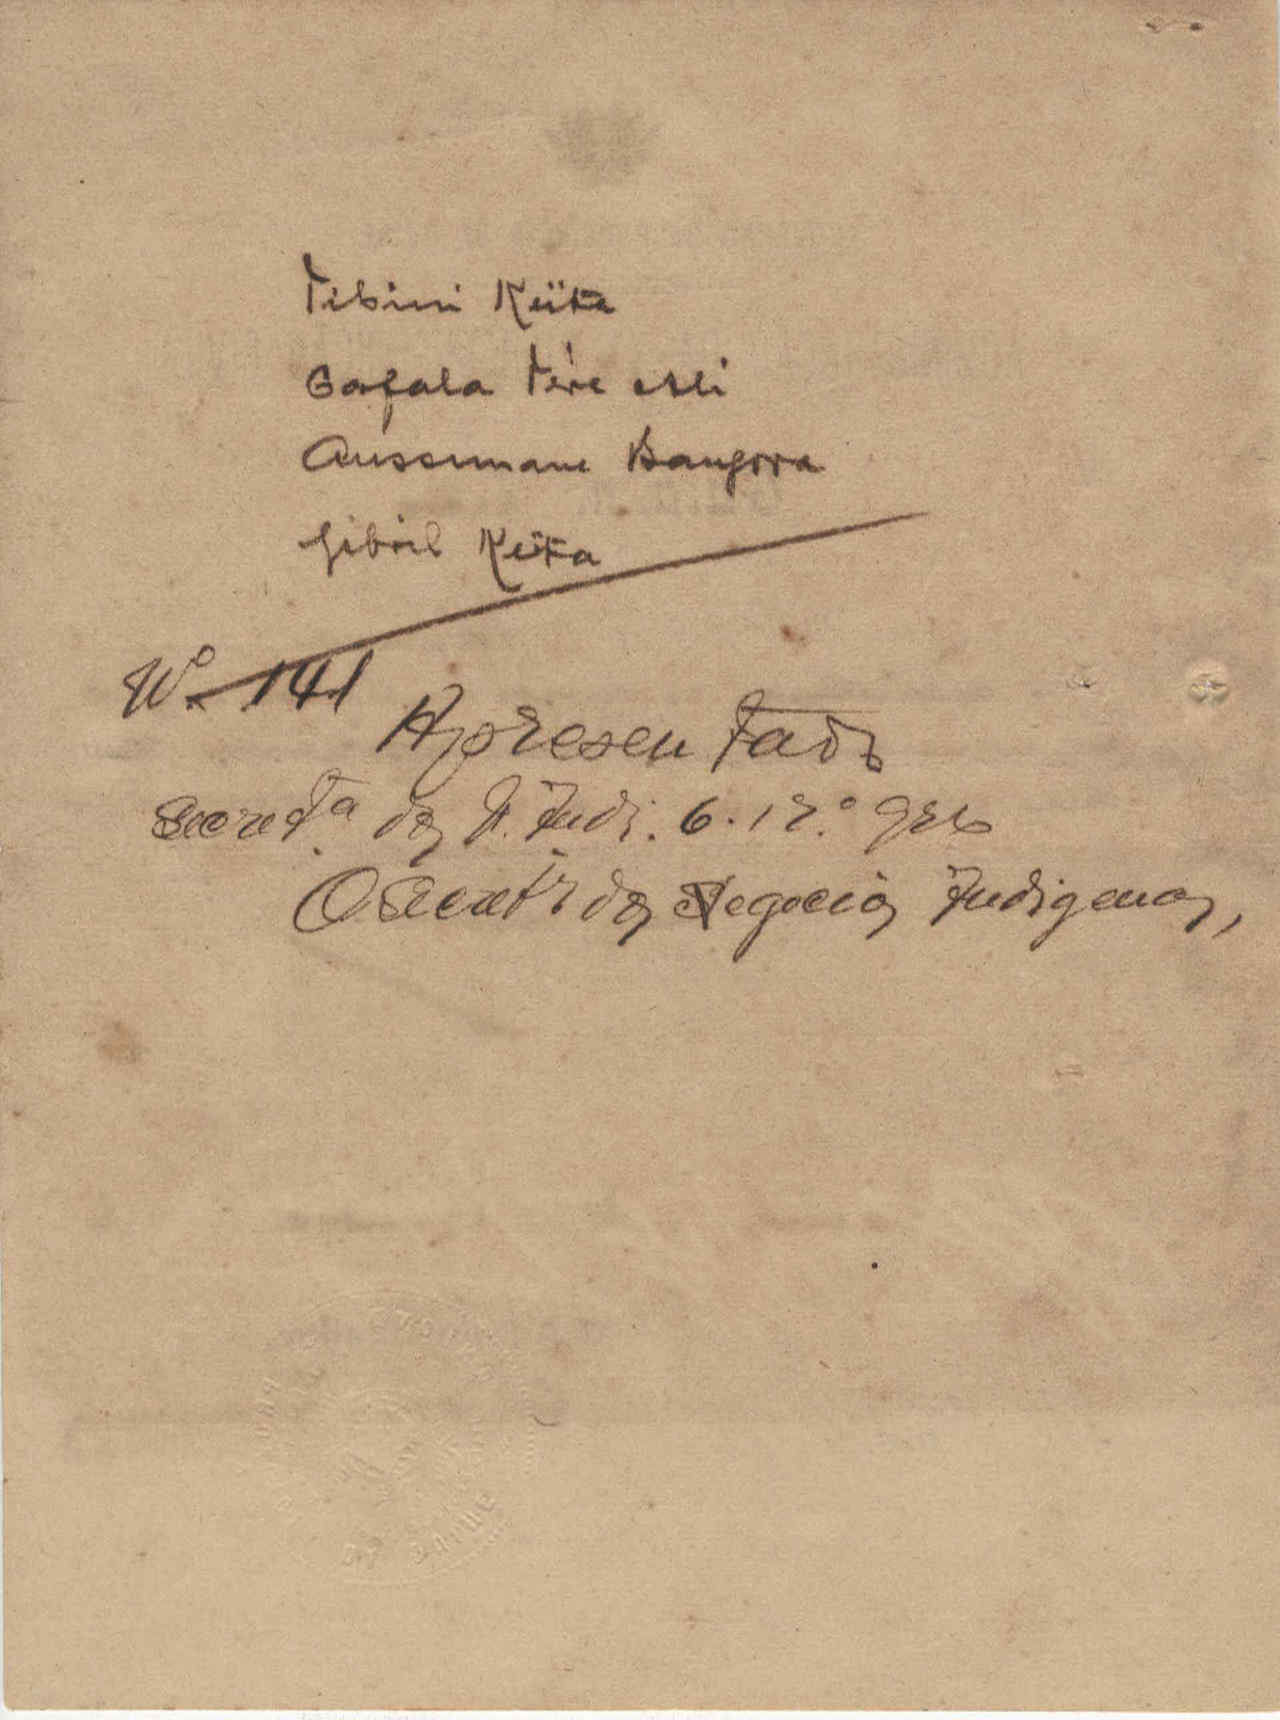 Tibini Keita
Gafala Fére Ali
Aussumane Bangora
Gibril Keita
Nº 141
Apresentado
Secretª dos N. Indi. 6.12.º 926
O Secretrº dos Negocios Indigenas,